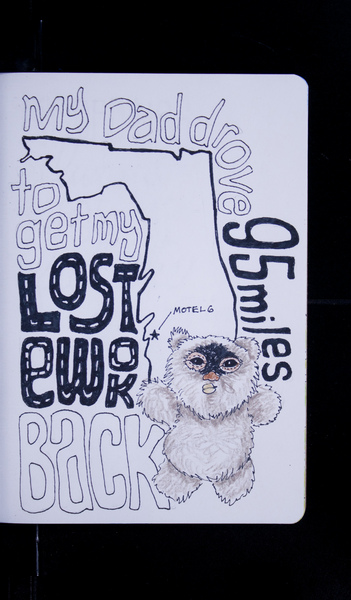 my Dad drove
95 miles
to
get my
LOST
ewok
BACK
MOTEL 6